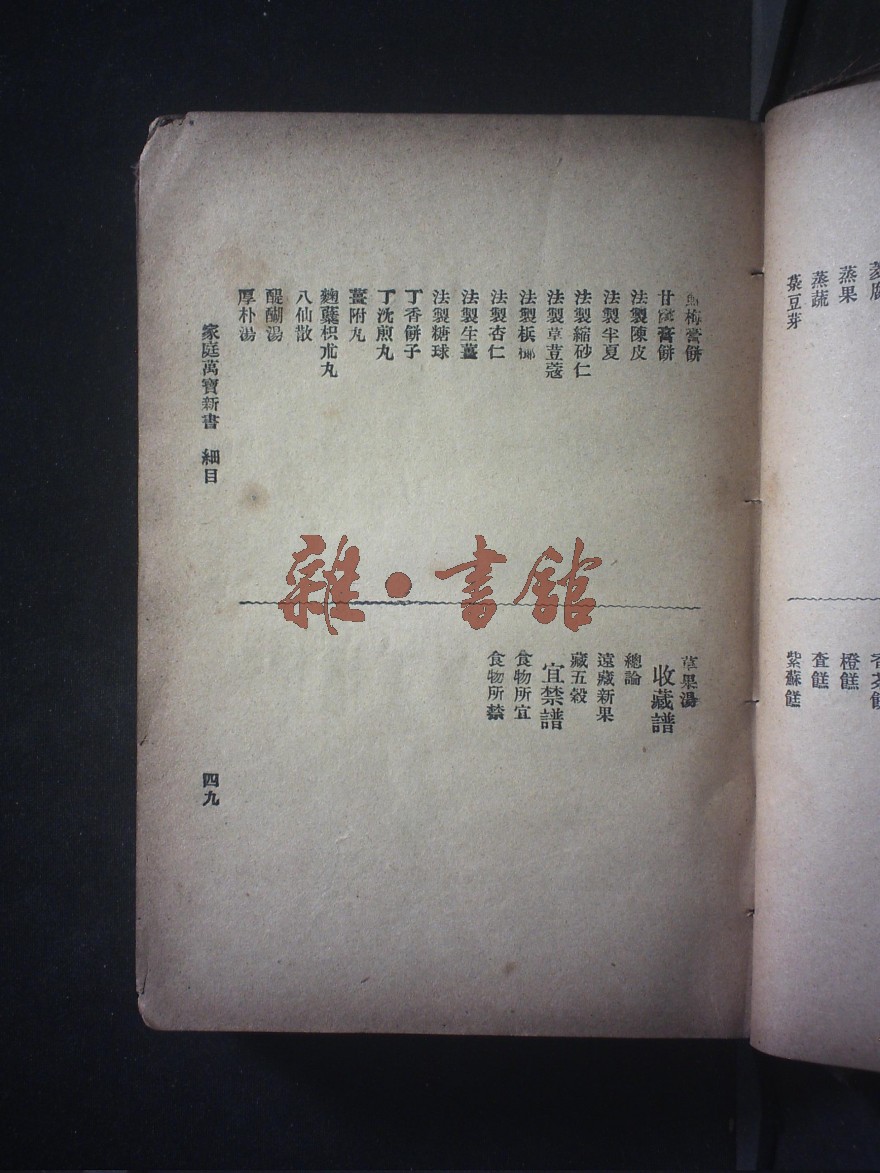 菱腐
蒸果
蒸蔬
菉豆芽
香茶餅
橙餻
查餻
紫蘇餻
烏梅膏餅
甘露膏餅
法製陳皮
法製半夏
法製縮砂仁
法製草荳蔻
法製檳榔
法製杏仁
法製生薑
法製糖球
丁香餅子
丁沈煎丸
薑附丸
麴蘗枳朮丸
八仙散
醍醐湯
厚朴湯
草果湯
收藏譜
總論
遠藏新果
藏五穀
宜禁譜
食物所宜
食物所禁
家庭萬寶新書 細目
四九
雜·書館